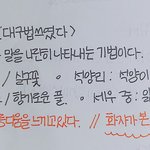 [대구법쓰였다]
말을 나란히 나타내는 기법이다.
/ 살구꽃 • 석양린 : 석양이
/ 향기로운 풀 • 세우 중 : 말
움다운을 느끼고있다. // 화자가 본